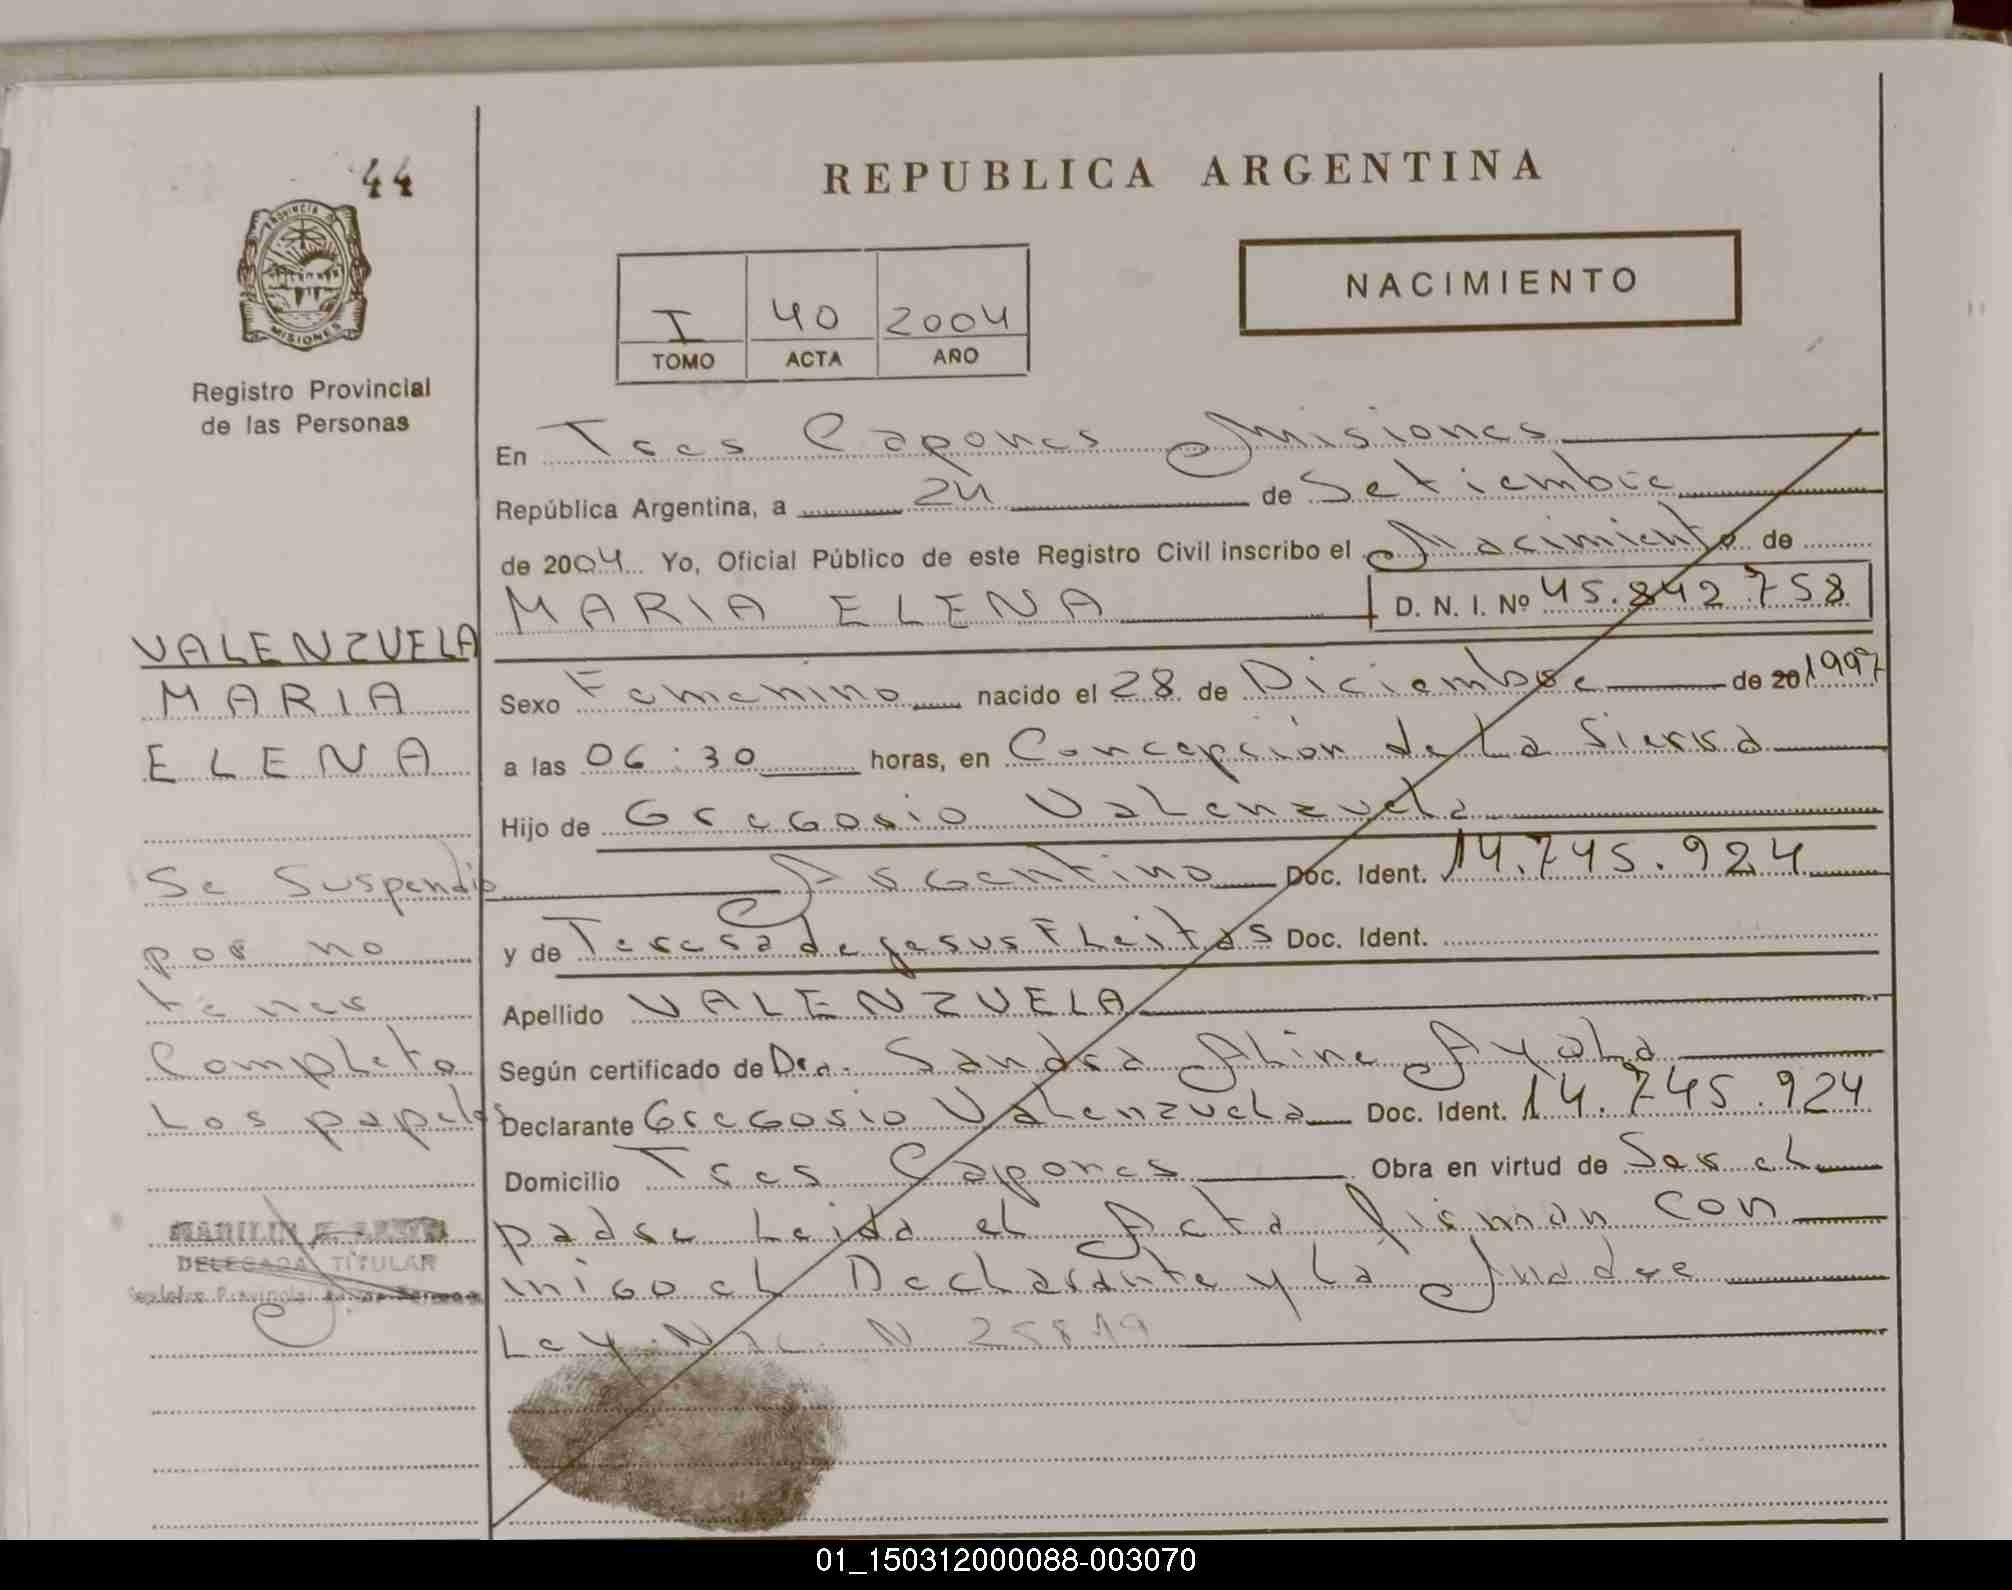 44
REPUBLICA ARGENTINA
PROVINCIA DE
MISIONES
NACIMIENTO
I 40 2004
TOMO ACTA AÑO
Registro Provincial
de las Personas
En Tres Capones Misiones
República Argentina, a 24 de Setiembre
de 2004 Yo, Oficial Público de este Registro Civil inscribo el Nacimiento de
MARIA ELENA D. N. I. Nº 45.842.758
VALENZUELA
MARIA
ELENA
Sexo Femenino nacido el 28 de Diciembre de 20 1997
a las 06:30 horas, en Concepción de La Sierra
Hijo de Gregorio Valenzuela
Argentino Doc. Ident. 14.745.924
y de Teresa de jesus Fleitas Doc. Ident.
Apellido VALENZUELA
Según certificado de Dra. Sandra Aline Ayala
Declarante Gregorio Valenzuela Doc. Ident. 14.745.924
Domicilio Tres Capones Obra en virtud de Ser el
padre Leida el Acta firman con
migo el Declarante y La Madre
Ley Nac. N 25819
Se Suspendio
por no
tener
Completo
Los papeles
DELEGADA TITULAR
01_150312000088-003070